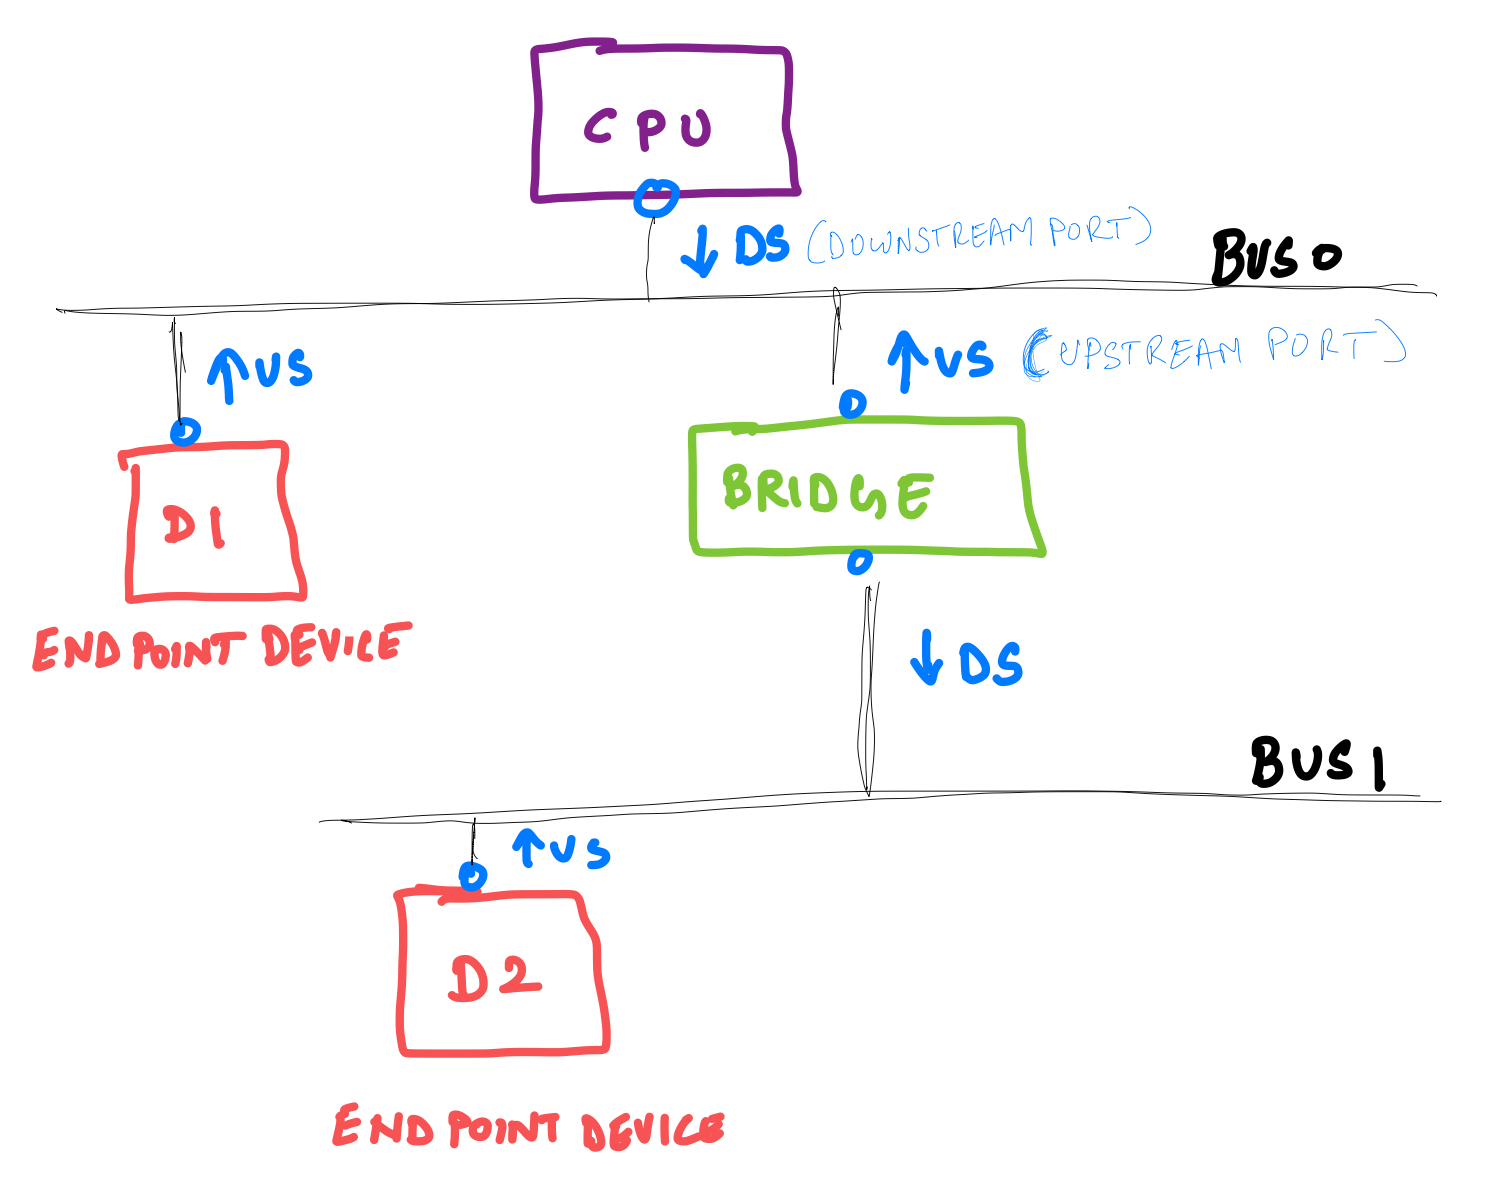 CPU
DS (DOWNSTREAM PORT)
BUS 0
US
US (UPSTREAM PORT)
D1
BRIDGE
END POINT DEVICE
DS
BUS 1
US
D2
END POINT DEVICE